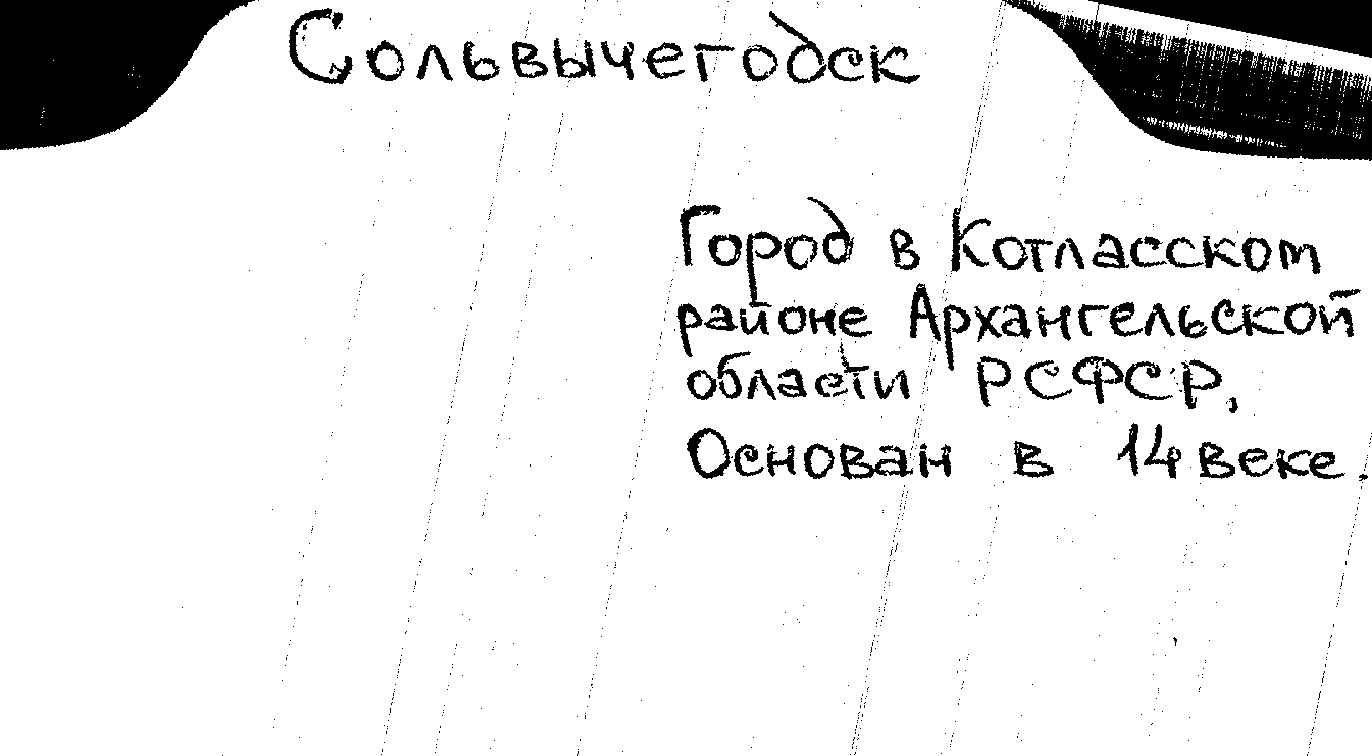 Сольвычегодск
Город в Котласском
районе Архангельской
области РСФСР,
Основан в 14 веке.